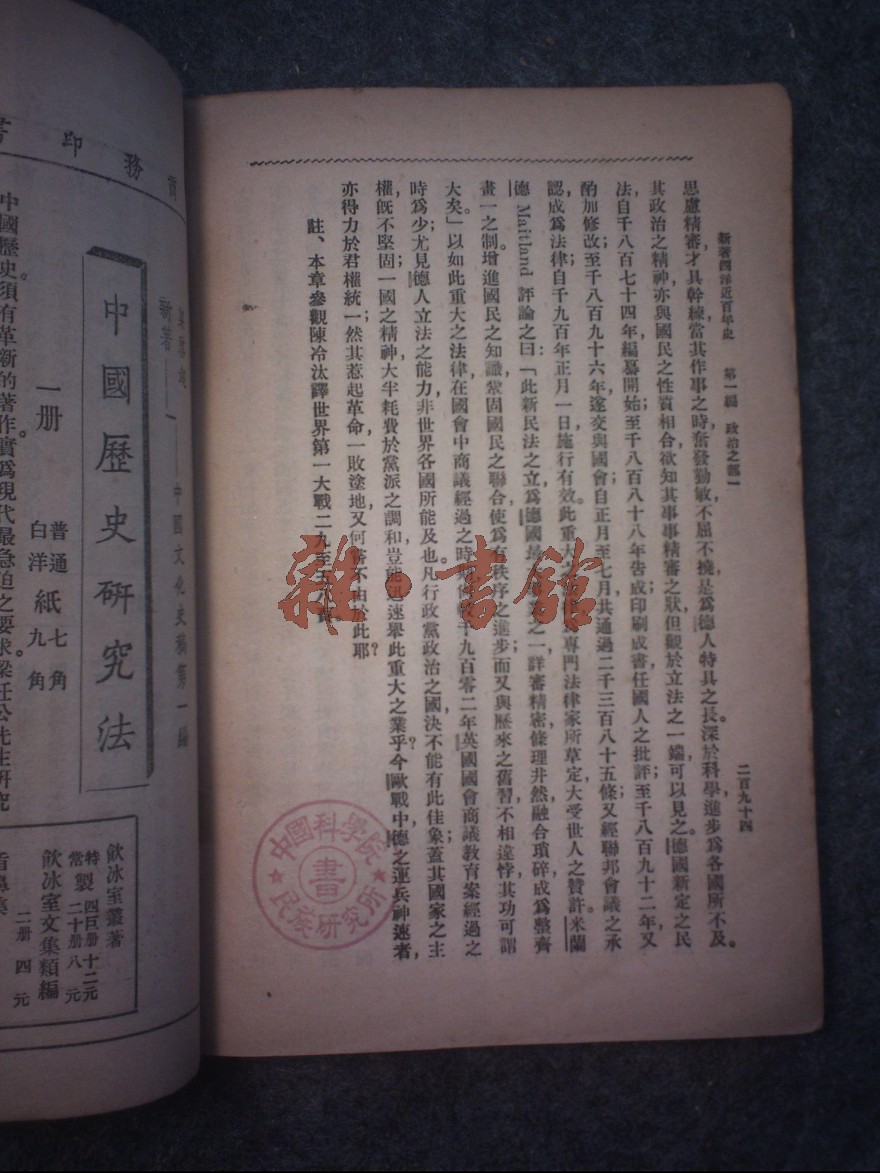 新著西洋近百年史　第一編　政治之部一
二百九十四
思慮精審才具幹練當其作事之時奮發勤敏不屈不撓是爲德人特具之長。深於科學進步爲各國所不及。
其政治之精神亦與國民之性質相合欲知其事事精審之狀但觀於立法之一端可以見之。德國新定之民
法自千八百七十四年編纂開始至千八百八十八年告成印刷成書任國人之批評至千八百九十二年又
酌加修改至千八百九十六年遂交與國會自正月至七月共通過二千三百八十五條又經聯邦會議之承
認成爲法律自千九百年正月一日施行有效。此重大之 專門法律家所草定大受世人之贊許米蘭
德 Maitland 評論之曰：「此新民法之立爲德國 之一詳審精密條理井然融合瑣碎成爲整齊
畫一之制。增進國民之知識鞏固國民之聯合使爲有秩序之進步；而又與歷來之舊習不相違悖其功可謂
大矣。」以如此重大之法律在國會中商議經過之時 千九百零二年英國國會商議教育案經過之
時爲少；尤見德人立法之能力，非世界各國所能及也。凡行政黨政治之國決不能有此佳象蓋其國家之主
權，既不堅固一國之精神大半耗費於黨派之調和豈能迅速舉此重大之業乎？今歐戰中德之運兵神速者，
亦得力於君權統一；然其惹起革命一敗塗地又何嘗不由於此耶？
註、本章參觀陳冷汰譯世界第一大戰二九至
雜·書館
中國科學院
書
民族研究所
務印書
新著
中國文化史稿第一編
中國歷史研究法
一册
普通紙七角
白洋紙九角
中國歷史須有革新的著作。實爲現代最急迫之要求。梁任公先生研究
飲冰室叢著
特製 四巨册 十二元
常製 二十册 八元
飲冰室文集類編
二册 四元